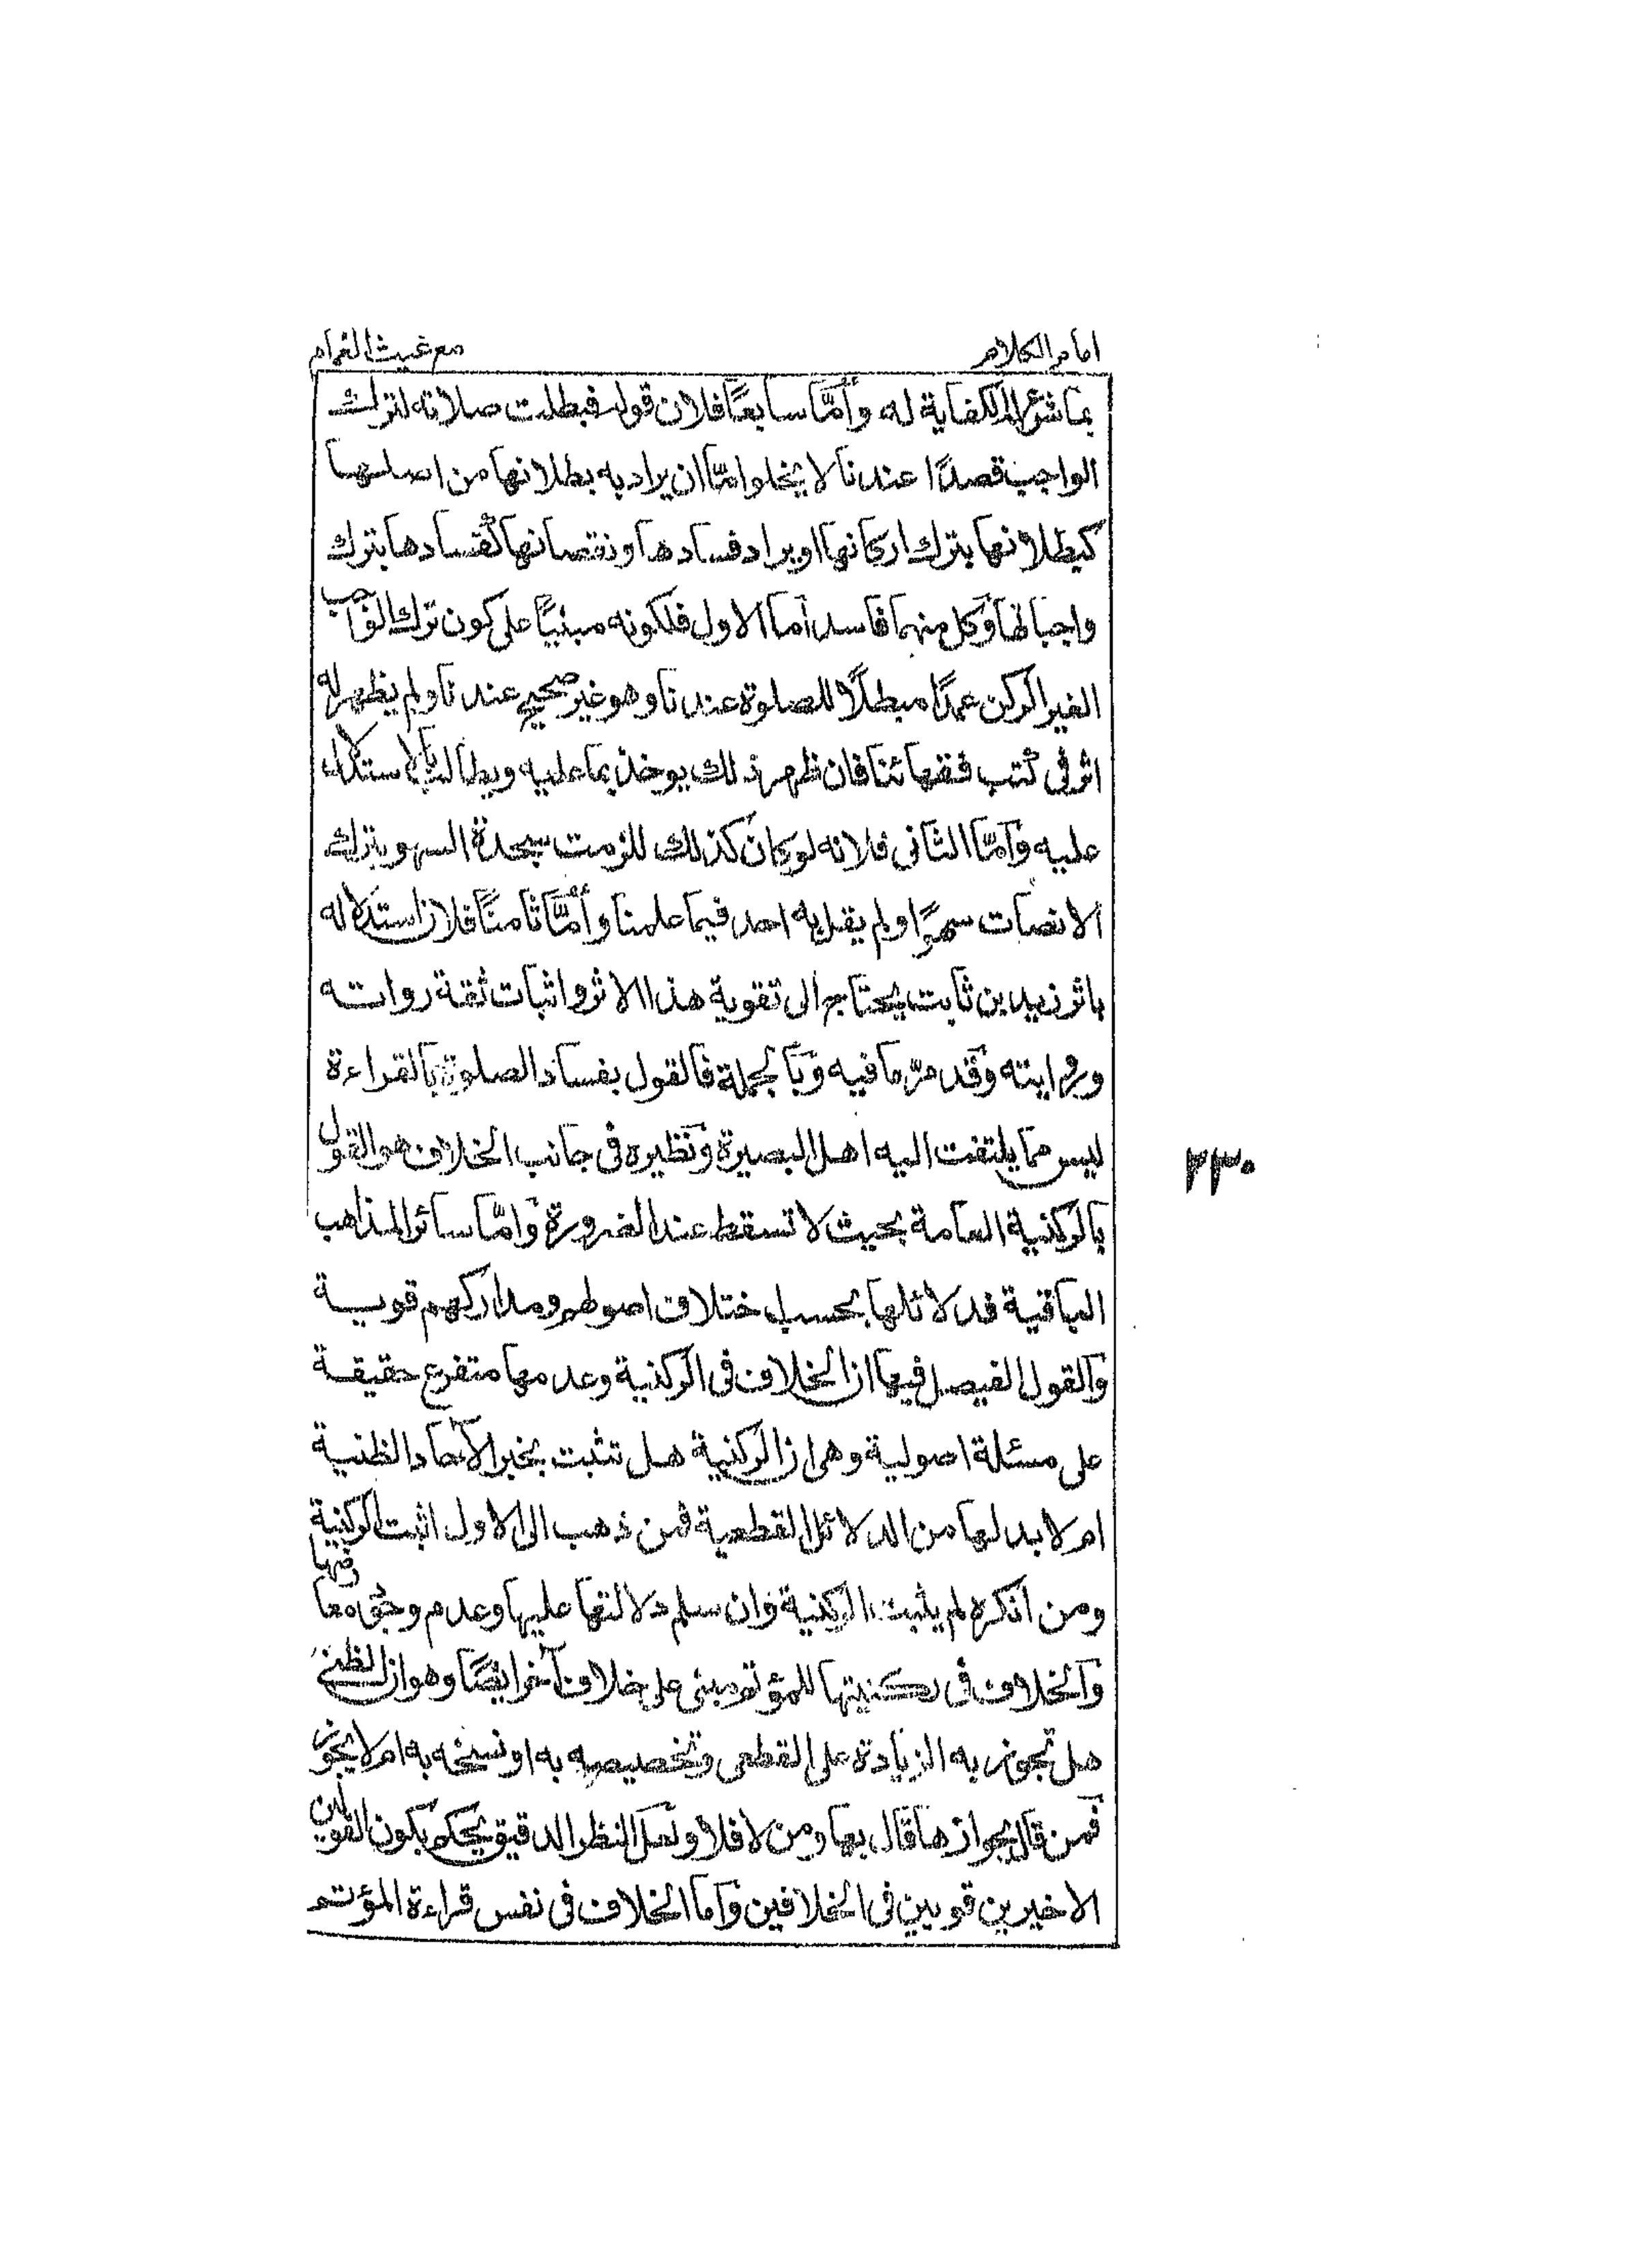 امام الكلام
مع غيث الغمام
بما شرع الكفاية له وأمّا سابعًا فلان قوله فبطلت صلاته لترك
الواجب قصدًا عندنا لا يخلو امّا ان يراد به بطلانها من اصلها
كبطلانها بترك اركانها او يراد فسادها ونقصانها كفسادها بترك
واجباتها وكل منهما فاسد أما الاول فلكونه مبنيًا على كون ترك الواجب
الغير الركن عمدًا مبطلًا للصلوة عندنا وهو غير صحيح عندنا ولم يظهر له
اثر فى كتب فقهائنا فان ظهر ذلك يوخذ بما عليه ويطالب بالاستدلال
عليه وأمّا الثانى فلانه لو كان كذلك للزمت سجدة السهو بترك
الانصات سهوًا ولم يقل به احد فيما علمنا وأمّا ثامنًا فلان استدلاله
باثر زيد بن ثابت يحتاج الى تقوية هذا الاثر واثبات ثقة رواته
وروايته وقد مرّ ما فيه وبالجملة فالقول بفساد الصلوة بالقراءة
ليس مما يلتفت اليه اهل البصيرة ونظيره فى جانب الخلاف هو القول
بالركنية العامة بحيث لا تسقط عند الضرورة وامّا سائر المذاهب
الباقية فدلائلها بحسب اختلاف اصولهم ومداركهم قوية
والقول الفيصل فيها ان الخلاف فى الركنية وعدمها متفرع حقيقة
على مسئلة اصولية وهى ان الركنية هل تثبت بخبر الآحاد الظنية
ام لا بد لها من الدلائل القطعية فمن ذهب الى الاول اثبت الركنية
ومن انكره لم يثبت الركنية وان سلم دلالتها عليها وعدم وجود معارضها
والخلاف فى ركنيتها للمؤتم مبنى على خلاف آخر ايضًا وهو ان الظنى
هل تجوز به الزيادة على القطعى وتخصيصه به او نسخه به ام لا يجوز
فمن قال بجوازها قال بها ومن لا فلا ولعل النظر الدقيق يحكم بكون القولين
الاخيرين قويين فى الخلافين وأما الخلاف فى نفس قراءة المؤتم
٢٣٠